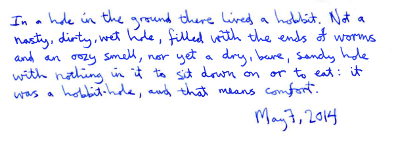 In a hole in the ground there lived a hobbit. Not a
nasty, dirty, wet hole, filled with the ends of worms
and an oozy smell, nor yet a dry, bare, sandy hole
with nothing in it to sit down on or to eat: it
was a hobbit-hole, and that means comfort.
May 7, 2014